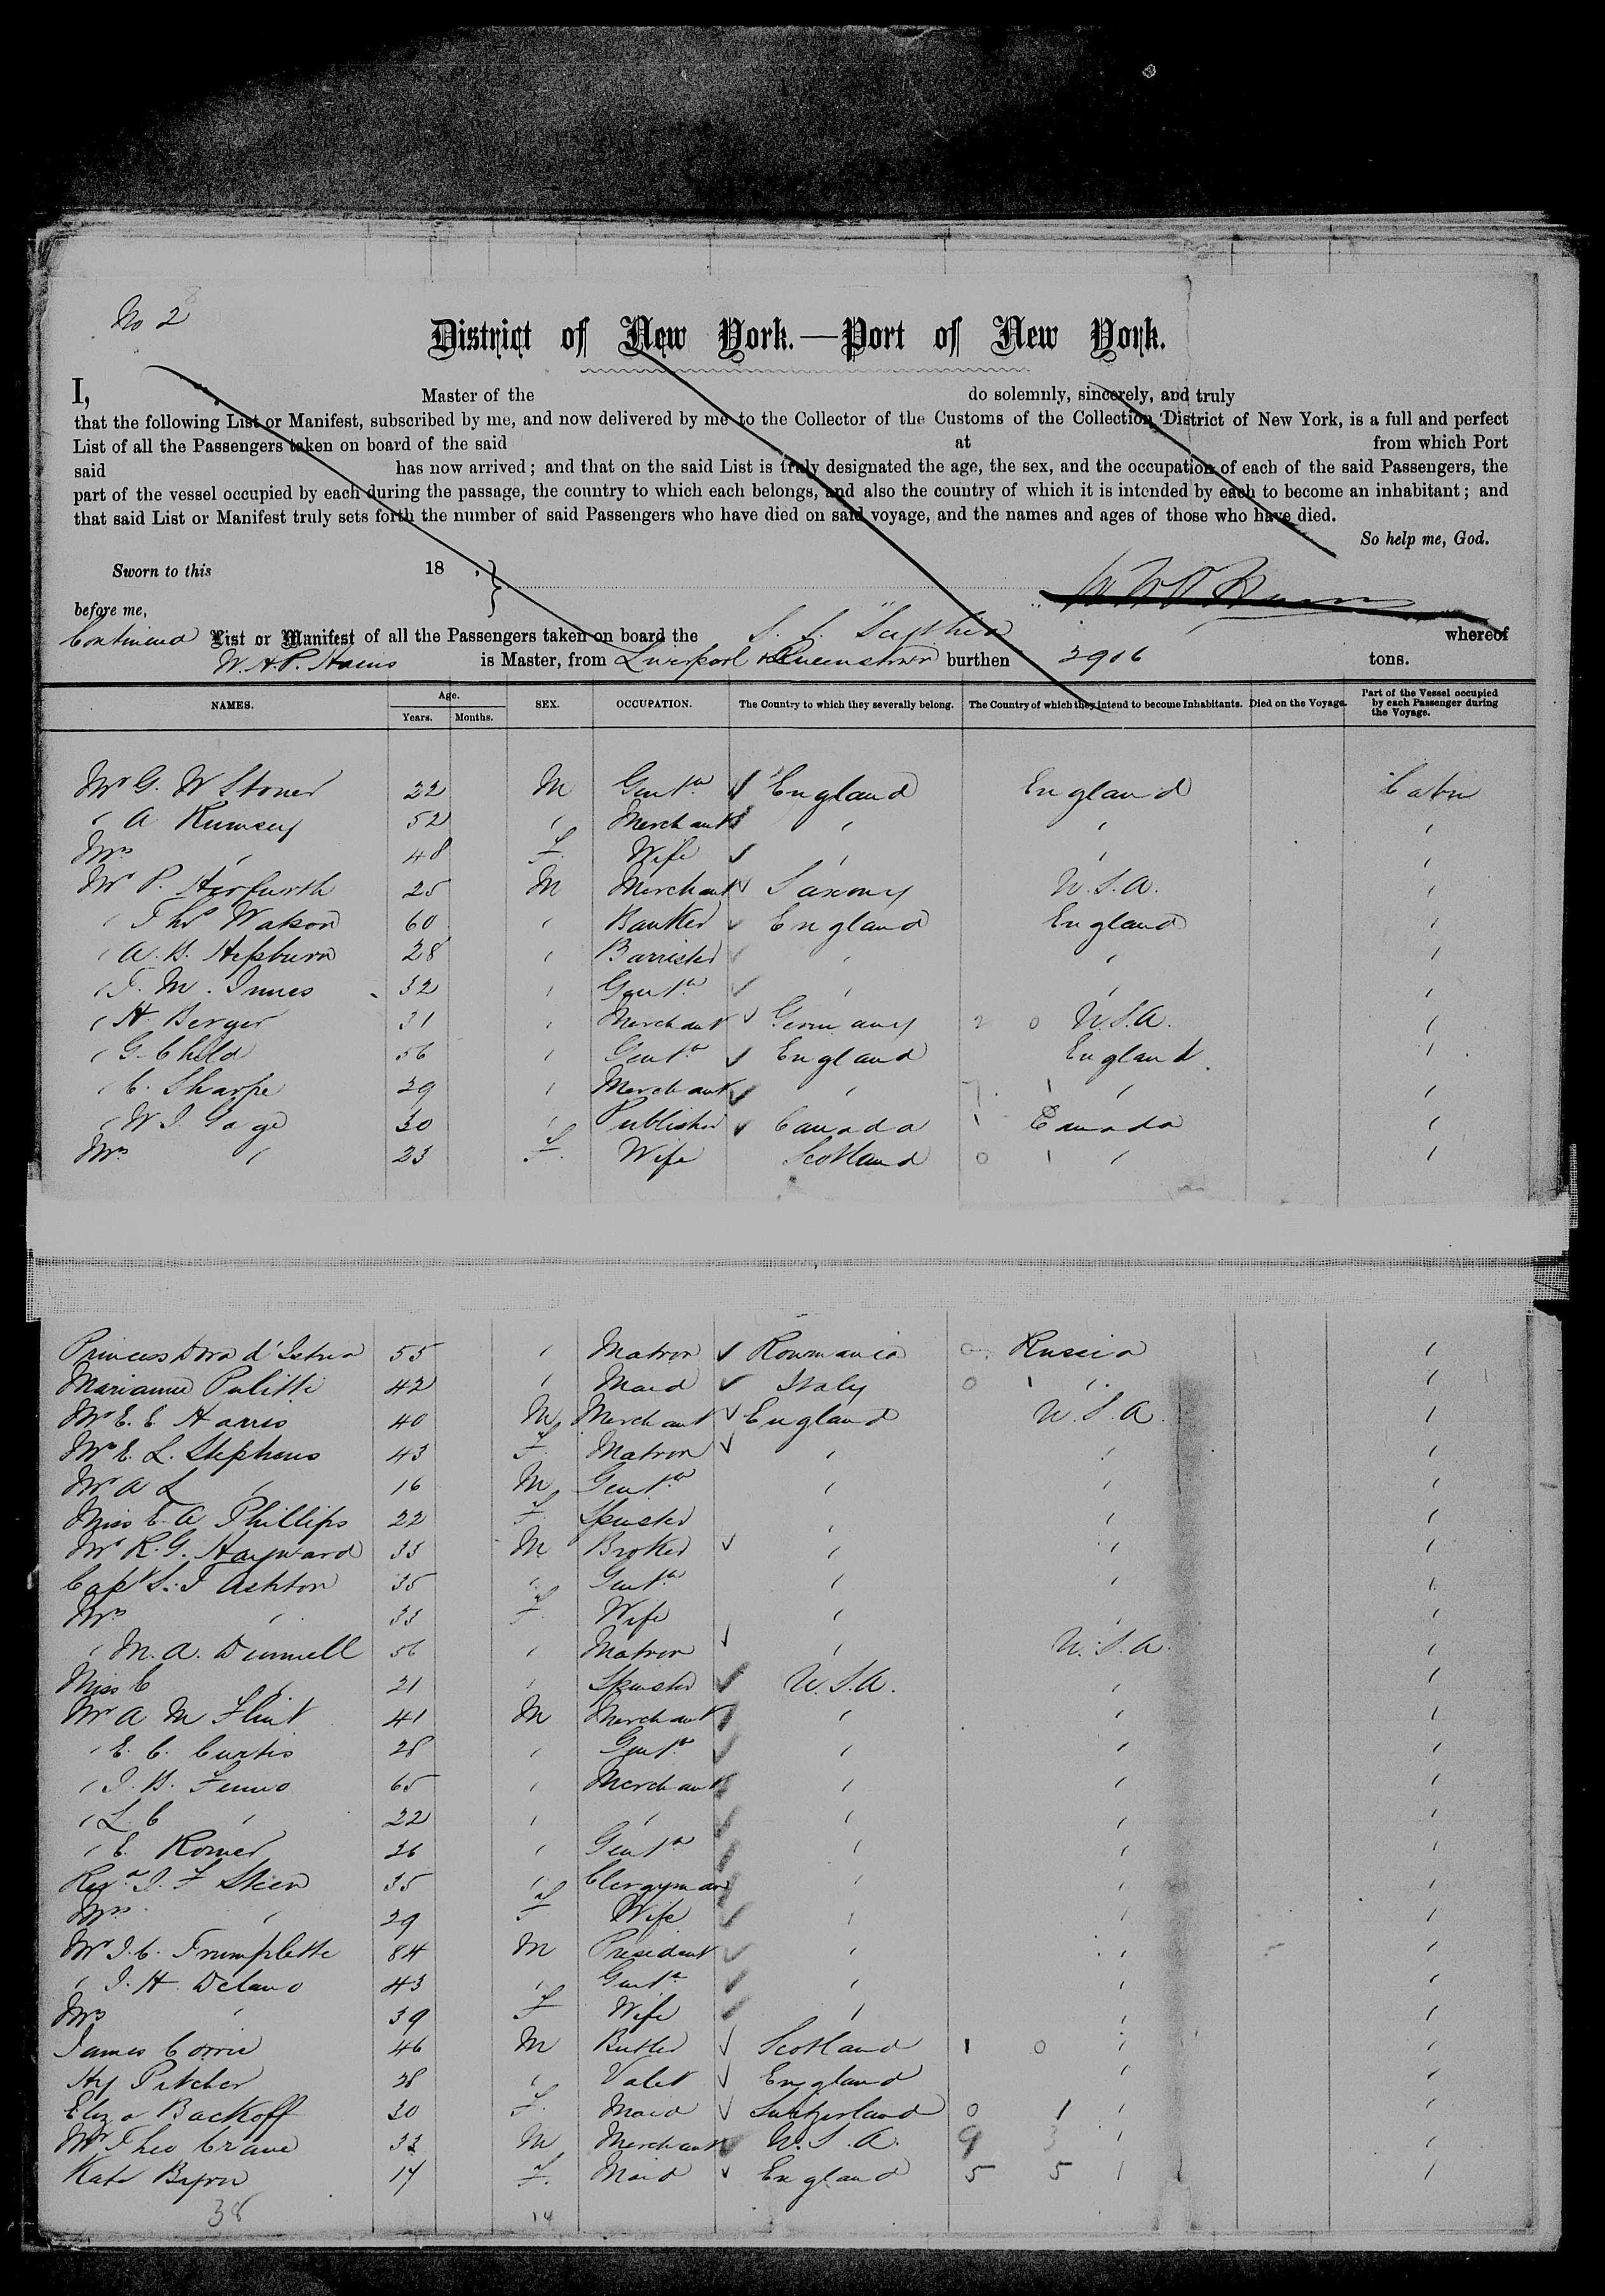 No 2
District of New York.—Port of New York.
I, Master of the do solemnly, sincerely, and truly
that the following List or Manifest, subscribed by me, and now delivered by me to the Collector of the Customs of the Collection District of New York, is a full and perfect
List of all the Passengers taken on board of the said at from which Port
said has now arrived; and that on the said List is truly designated the age, the sex, and the occupation of each of the said Passengers, the
part of the vessel occupied by each during the passage, the country to which each belongs, and also the country of which it is intended by each to become an inhabitant; and
that said List or Manifest truly sets forth the number of said Passengers who have died on said voyage, and the names and ages of those who have died.
So help me, God.
Sworn to this 18 ,
before me,
Continued List or Manifest of all the Passengers taken on board the S. S. "Scythia whereof
W. H. P. Hains is Master, from Liverpool & Queenstown burthen 2906 tons.
NAMES. Age. Years. Months. SEX. OCCUPATION. The Country to which they severally belong. The Country of which they intend to become Inhabitants. Died on the Voyage. Part of the Vessel occupied by each Passenger during the Voyage.
Mr G. W Stoner 22 M Gentn England England Cabin
" A Rumsey 52 " Merchant " " "
Mrs " 48 F. Wife " " "
Mr P. Herfurth 25 M Merchant Saxony U.S.A. "
" Thos Watson 60 " Banker England England "
" A. B. Hepburn 28 " Barrister " " "
" T. M. Innes 32 " Gentn " " "
" H. Berger 31 " Merchant Germany 2 0 U.S.A. "
" G. Child 56 " Gentn England England "
" C. Sharpe 29 " Merchant " " "
" W J. Gage 30 " Publisher Canada 1 Canada "
Mrs " 23 F. Wife Scotland 0 1 " "
Princess Dora d'Istria 55 " Matron Roumania 0 Russia "
Marianne Pulitti 42 " Maid Italy 0 1 " "
Mr E. C Harris 40 M Merchant England U.S.A. "
Mrs E. L. Stephens 43 F. Matron " " "
Mr A L " 16 M Gentn " " "
Miss E. A Phillips 22 F. Spinster " " "
Mr R. G. Hayward 33 M Broker " " "
Capt S. T Ashton 35 " Gentn " " "
Mrs " 33 F. Wife " " "
" M. A. Dunnell 56 " Matron " U.S.A. "
Miss C " 21 " Spinster U.S.A. " "
Mr A M Flint 41 M Merchant " " "
" E. C. Curtis 28 " Gentn " " "
" J. B. Fenno 65 " Merchant " " "
" L C " 22 " " " " "
" E. Romer 26 " Gentn " " "
Revd J. F Skeen 35 " Clergyman " " "
Mrs " 29 F Wife " " "
Mr J. C. Trumplette 84 M President " " "
" J. H. Delano 43 " Gentn " " "
Mrs " 39 F Wife " " "
James Corrie 46 M Butler Scotland 1 0 " "
Hy Pitcher 28 " Valet England " "
Eliza Backoff 30 F. Maid Switzerland 0 1 " "
Mr Theo Crane 33 M Merchant U.S.A. 9 3 " "
Kate Byron 17 F. Maid England 5 5 " "
38 14